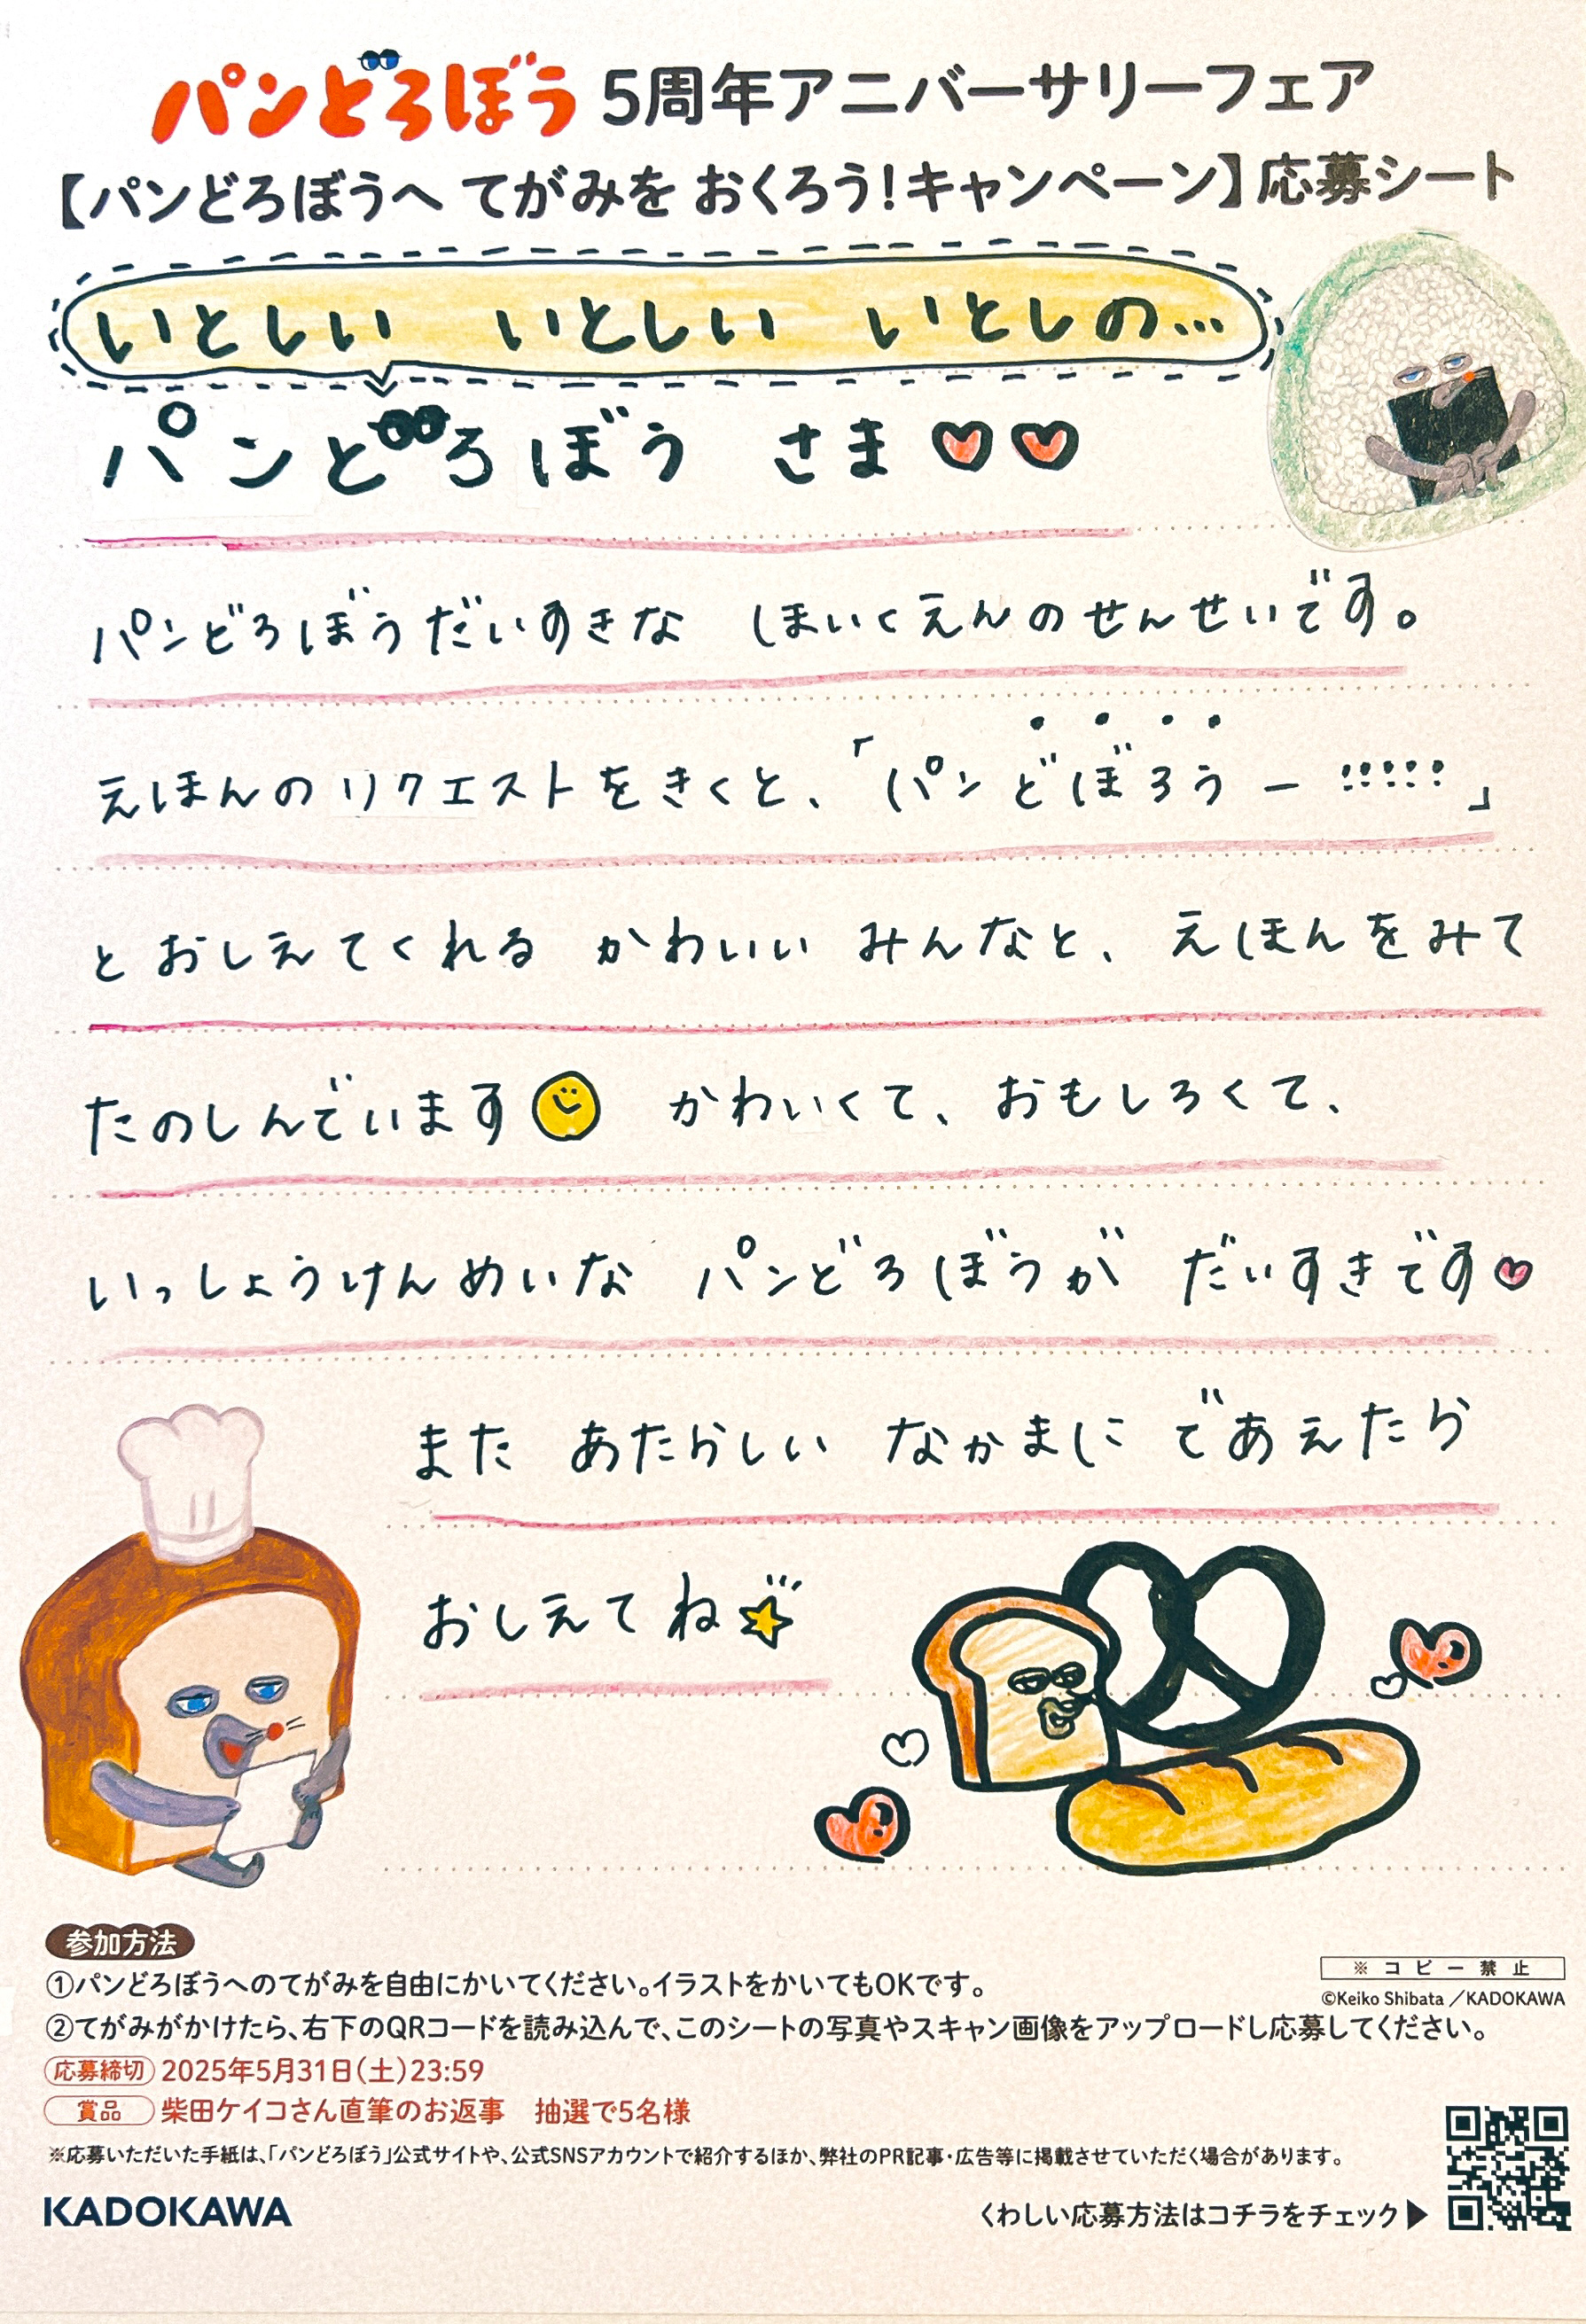 パンどろぼう 5周年アニバーサリーフェア
【パンどろぼうへ てがみを おくろう!キャンペーン】応募シート
いとしい いとしい いとしの…
パンどろぼう さま
パンどろぼうだいすきな ほいくえんのせんせいです。
えほんのリクエストをきくと、「パンどぼろうー!!!!!」
とおしえてくれる かわいい みんなと、えほんをみて
たのしんでいます かわいくて、おもしろくて、
いっしょうけんめいな パンどろぼうが だいすきです
また あたらしい なかまに であえたら
おしえてね
参加方法
①パンどろぼうへのてがみを自由にかいてください。イラストをかいてもOKです。
※コピー禁止
©Keiko Shibata/KADOKAWA
②てがみがかけたら、右下のQRコードを読み込んで、このシートの写真やスキャン画像をアップロードし応募してください。
応募締切 2025年5月31日(土)23:59
賞品 柴田ケイコさん直筆のお返事 抽選で5名様
※応募いただいた手紙は、「パンどろぼう」公式サイトや、公式SNSアカウントで紹介するほか、弊社のPR記事・広告等に掲載させていただく場合があります。
KADOKAWA
くわしい応募方法はコチラをチェック▶